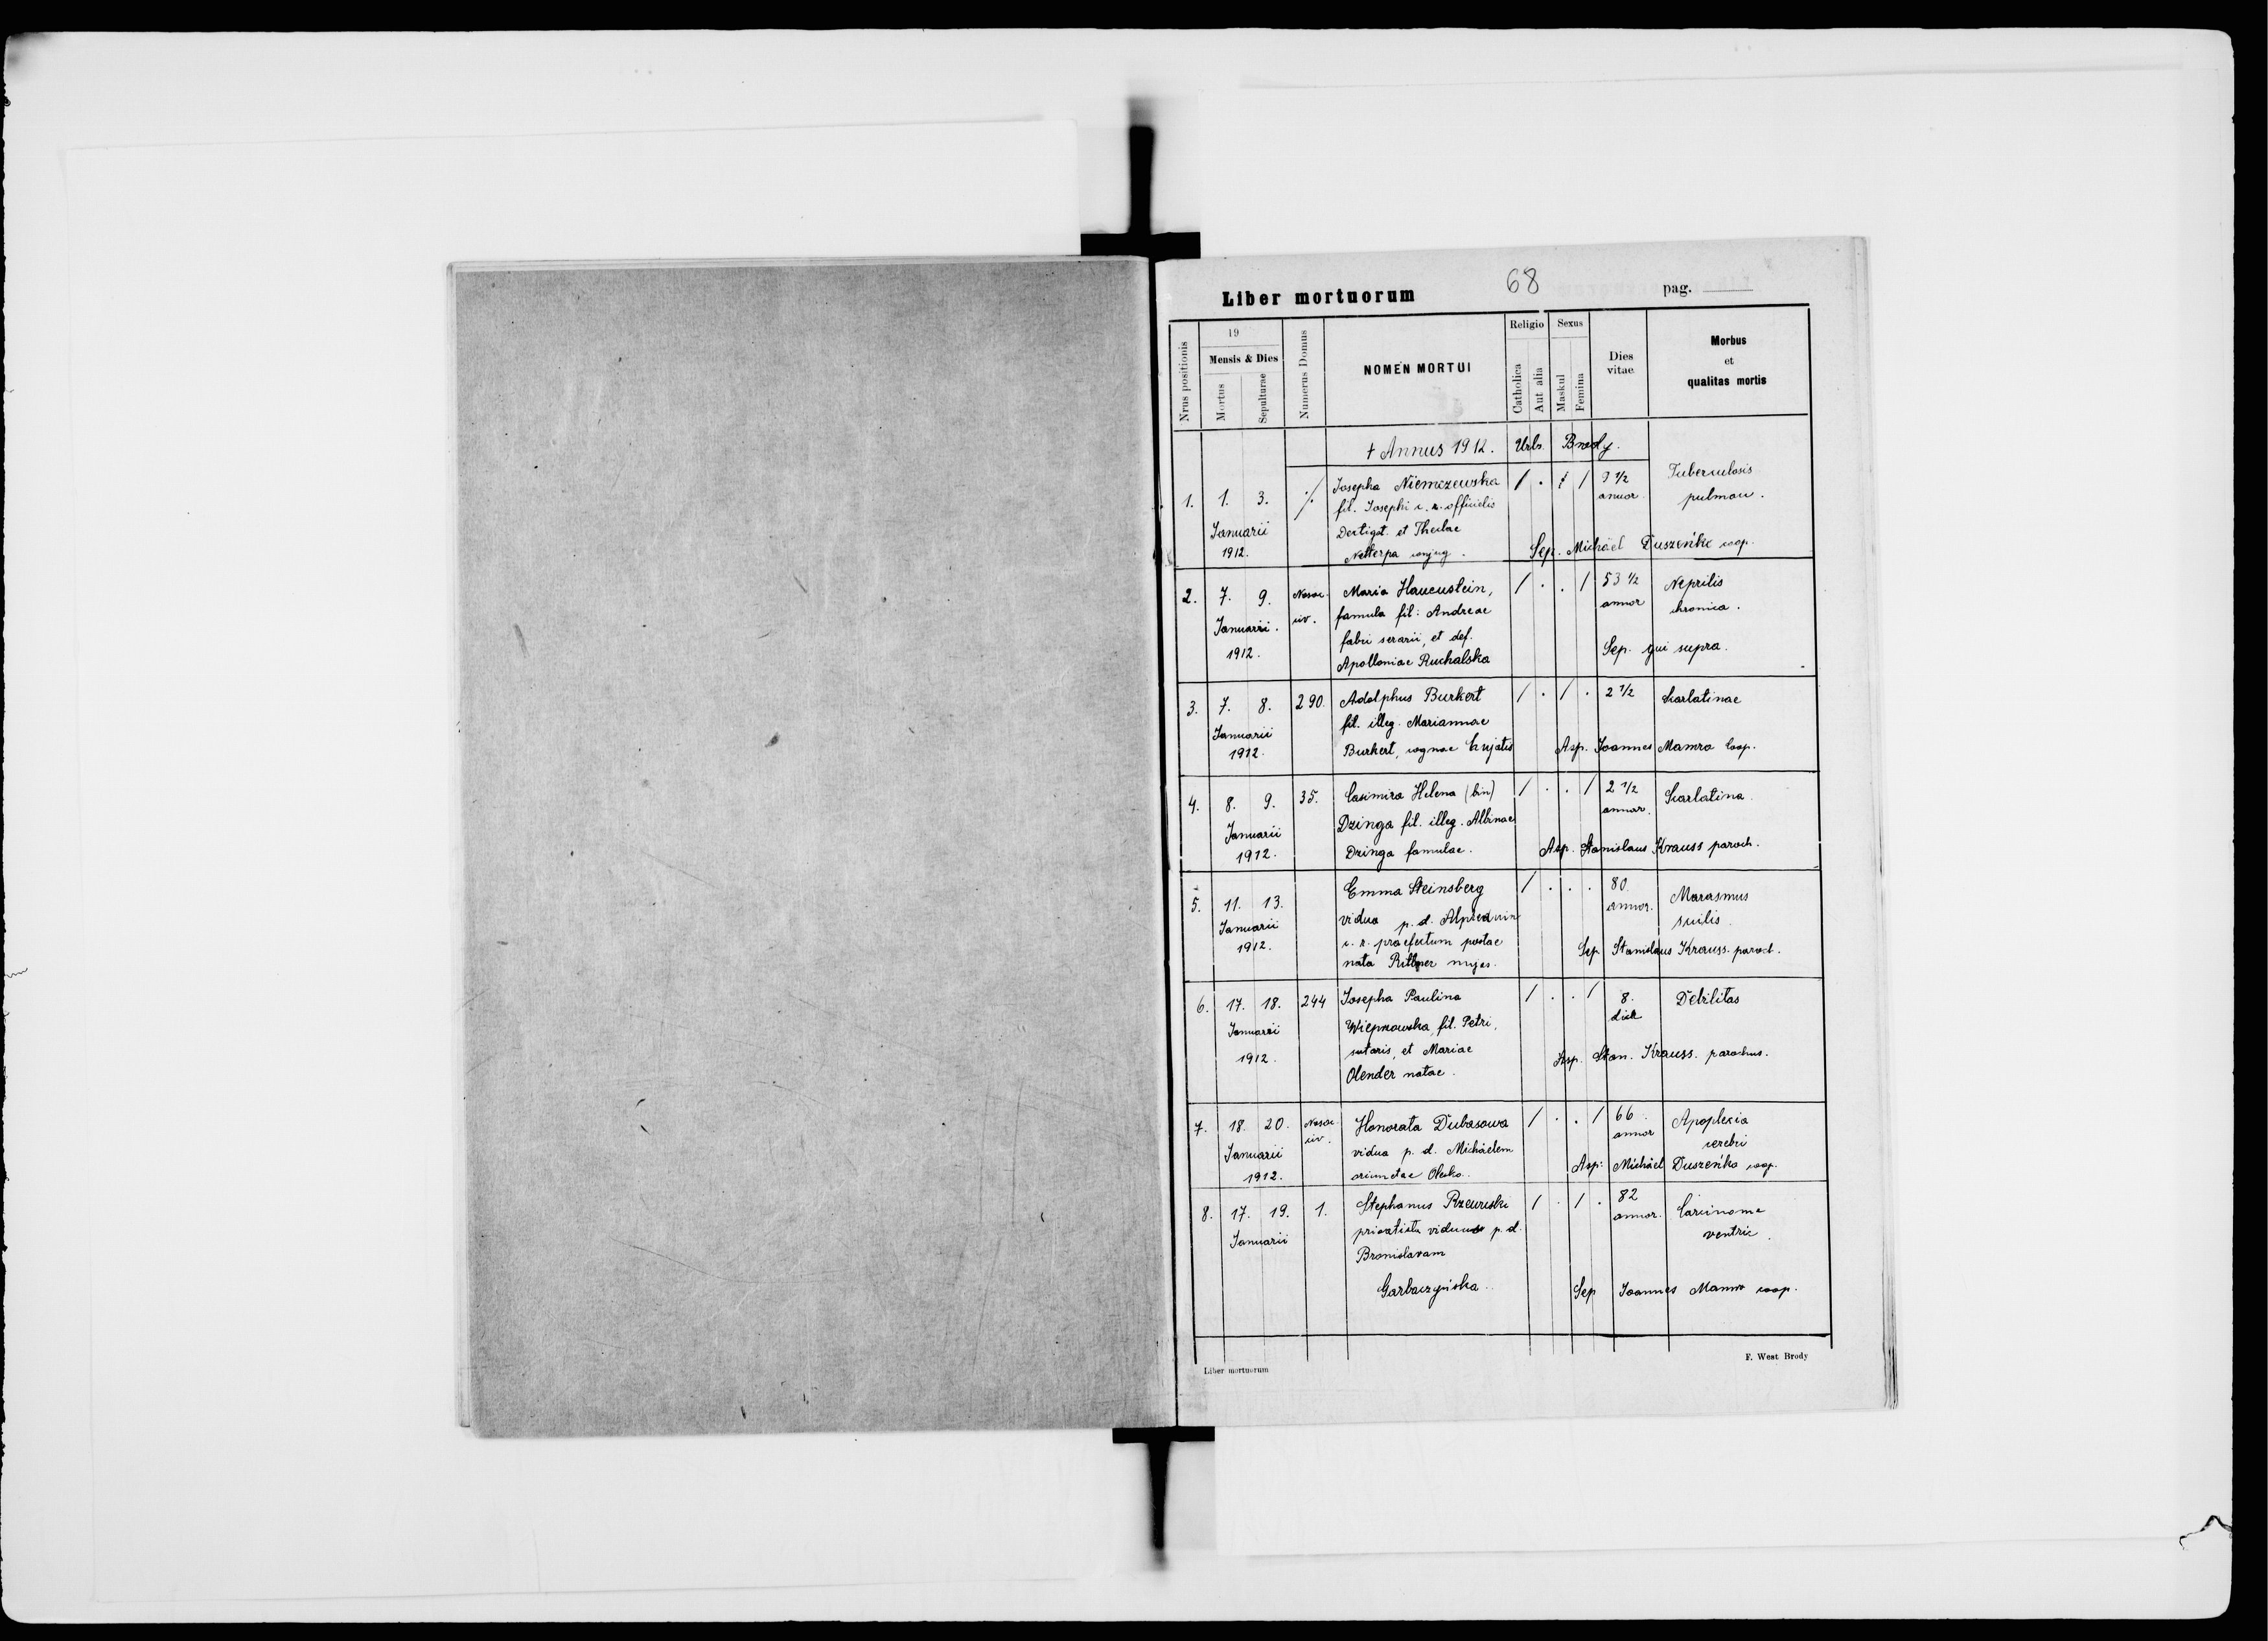 68
Liber mortuorum pag.
Nrus positionis 19 Numerus Domus NOMEN MORTUI Religio Sexus Dies vitae Morbus et qualitas mortis
Mensis & Dies
Mortus Sepulturae Catholica Aut alia Maskul Femina
† Annus 1912. Urbs Brody.
1. 1. 3. ./. Josepha Niemczewska / . / 9 1/2 Tuberculosis
fil. Josephi c. r. officialis annor. pulmon.
Januarii et Theclae
1912. conjug. Sep. Michäel Duszeńko coop.
2. 7. 9. Nosoc. Maria Haucustein, / . . / 53 1/2 Nefritis
civ. famula fil: Andreae annor chronica.
Januarii. fabri serarii, et def. Sep. qui supra.
1912. Apolloniae Ruchalska
3. 7. 8. 290. Adolphus Burkert / . / . 2 1/2 Scarlatinae
Januarii fil. illeg. Mariannae
1912. Burkert, hujatis Asp. Joannes Mamro Coop.
4. 8. 9. 35. Casimira Helena (bin) / . . / 2 1/2 Scarlatina
Januarii Dzinga fil. illeg. Albinae annor.
1912. Dzinga famulae. Asp. Stanislaus Krauss paroch.
5. 11. 13. Emma Steinsberg / . . . 80. Marasmus
Januarii vidua p. d. annor. senilis
1912. c. r. praefectum postae
nata Sep. Stanislaus Krauss. paroch.
6. 17. 18. 244 Josepha Paulina / . . / 8. Debilitas
Januarii fil. Petri, dies
1912. sutoris, et Mariae Asp. Stan. Krauss. parochus.
Olender natae.
7. 18. 20. Nosoc. Honorata Dubasowa / . . / 66. Apoplexia
civ. vidua p. d. Michäelem annor cerebri
Januarii oriundae Olesko. Asp: Michäel Duszeńko coop.
1912.
8. 17. 19. 1. Stephanus / . / . 82 Carcinoma
Januarii privatista viduus p. d. annor. ventric.
Bronislavam
Garbaczyńska. Sep Joannes Mamro coop.
Liber mortuorum F. West Brody